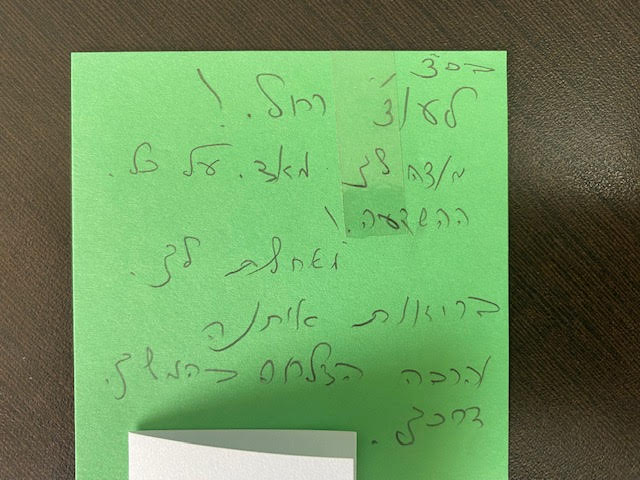 בס״ד
רחל.!
מודה לך מאד. על כל.
ההשקעה.!
מאחלת לך.
בריאות איתנה
והרבה הצלחה בהמשך.
דרכך.